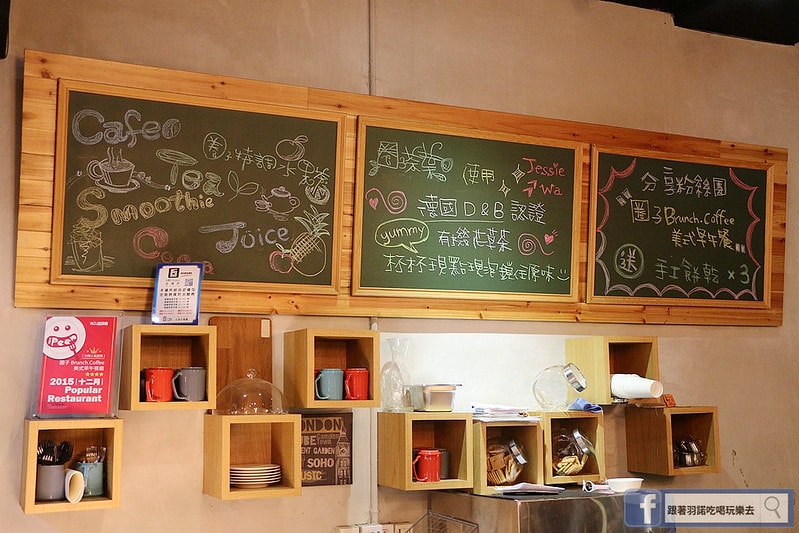 Cafeo
圈子特調水果茶
Tea
Smoothie
Coco
Juice
圈孩葉
使用
Jessie
Wa
德國 D & B 認證
yummy
有機花草茶
杯杯現點現泡鎖住原味
分享粉絲團
圈子Brunch.Coffee
美式早午餐
送
手工餅乾 × 3
iPeen
圈子 Brunch.Coffee
美式早午餐
★★★★
2015 [十二月]
Popular
Restaurant
LONDON
GARDEN
SOHO
跟著羽諾吃喝玩樂去